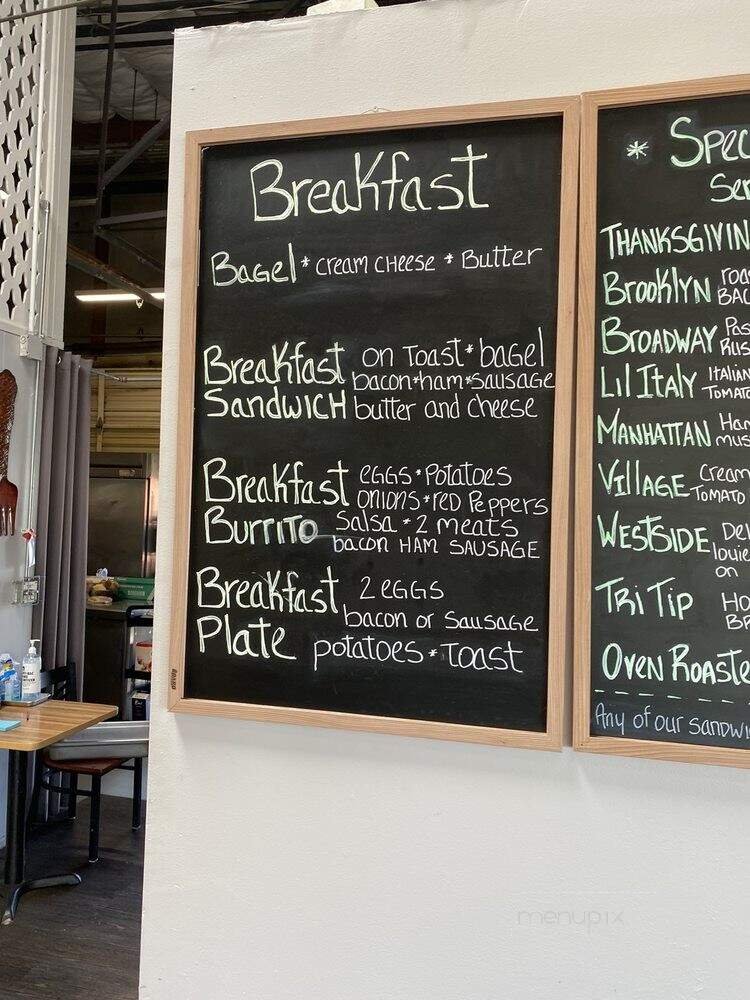 Breakfast
Bagel * cream cheese * Butter
Breakfast Sandwich
on Toast * bagel
bacon * ham * sausage
butter and cheese
Breakfast Burrito
eggs * Potatoes
onions * red Peppers
Salsa * 2 meats
bacon HAM SAUSAGE
Breakfast Plate
2 eggs
bacon or Sausage
potatoes * Toast
* Spec
Ser
THANKSGIVIN
BROOKLYN roas
BAC
BROADWAY Pas
Rus
LIL ITALY Italian
Tomato
MANHATTAN Ham
mus
VILLAGE Cream
Tomato
WESTSIDE Del
louie
on
TRI TIP HO
BR
OVEN ROASTE
Any of our sandwi
menupix